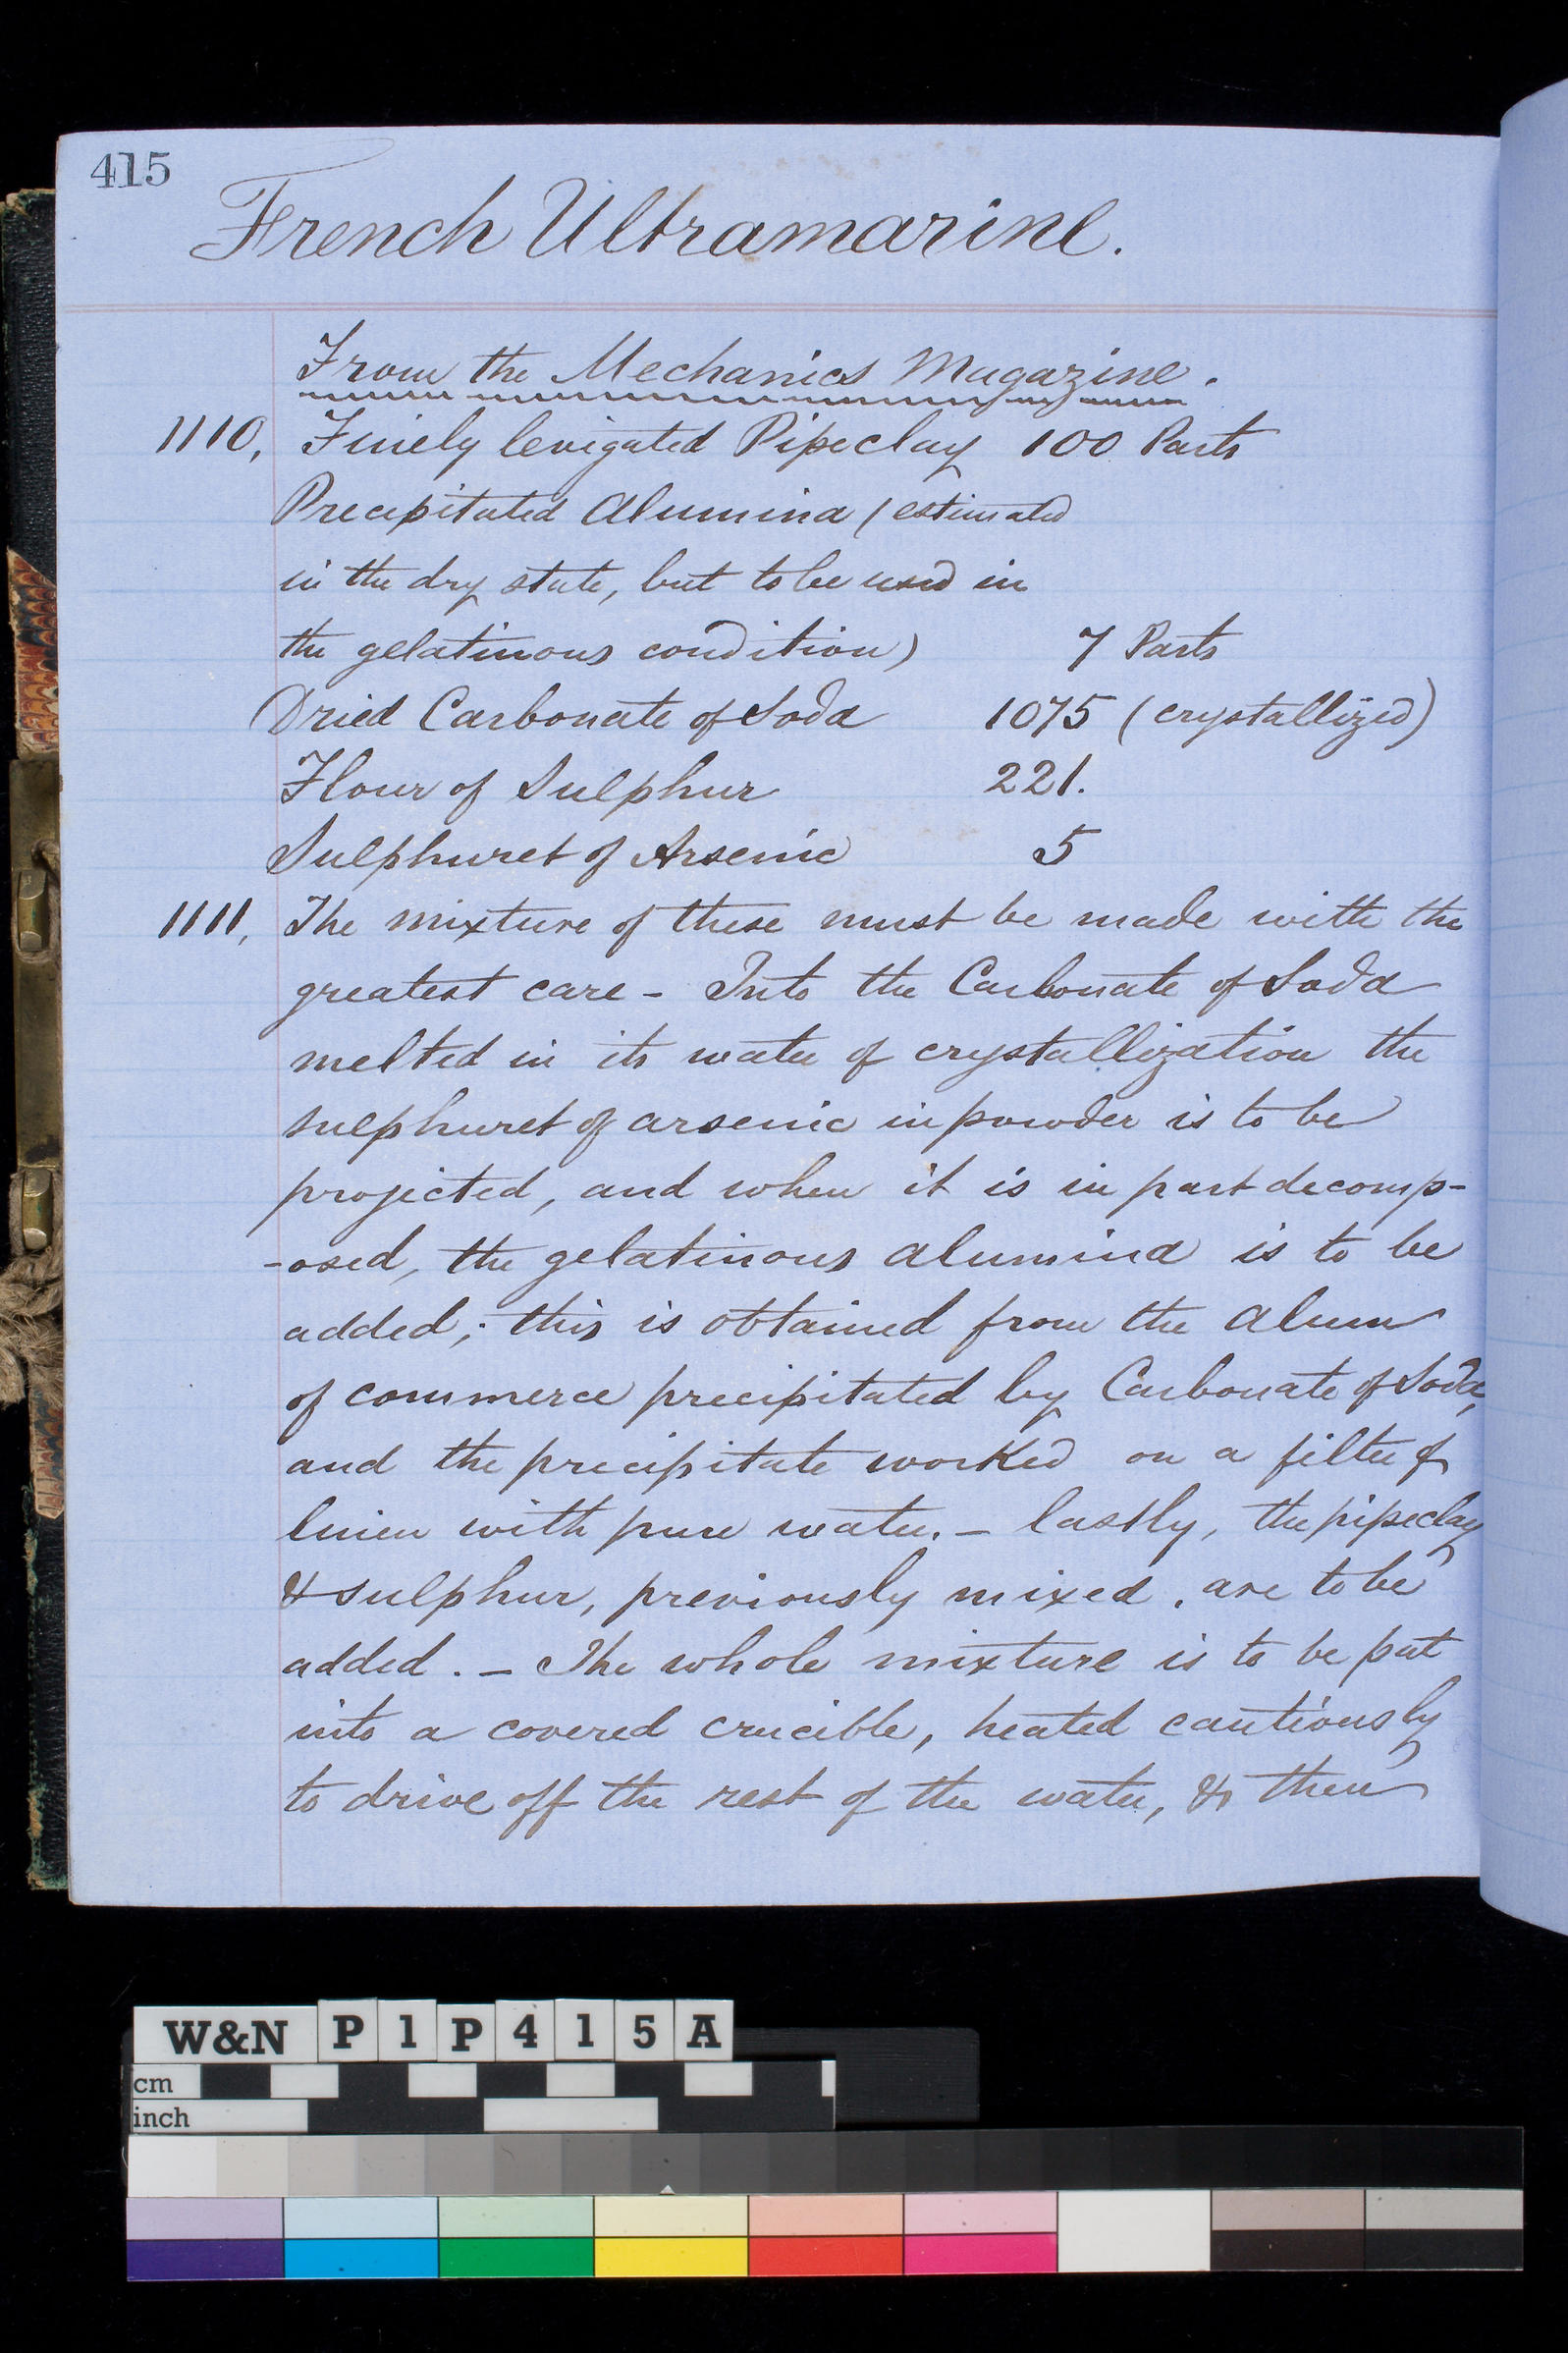 415
French Ultramarine.
From the Mechanics Magazine.
1110, Finely levigated Pipeclay 100 Parts
Precipitated Alumina (estimated
in the dry state, but to be used in
the gelatinous condition) 7 Parts
Dried Carbonate of Soda 1075 (crystallized)
Flour of Sulphur 221.
Sulphuret of Arsenic 5
1111, The mixture of these must be made with the
greatest care - Into the Carbonate of Soda
melted in its water of crystallization the
sulphuret of arsenic in powder is to be
projected, and when it is in part decomp-
-osed, the gelatinous alumina is to be
added; this is obtained from the Alum
of commerce precipitated by Carbonate of Soda,
and the precipitate worked on a filter of
linen with pure water. - lastly, the pipeclay
& sulphur, previously mixed, are to be
added. - The whole mixture is to be put
into a covered crucible, heated cautiously
to drive off the rest of the water, & then
W&N P1P415A
cm
inch